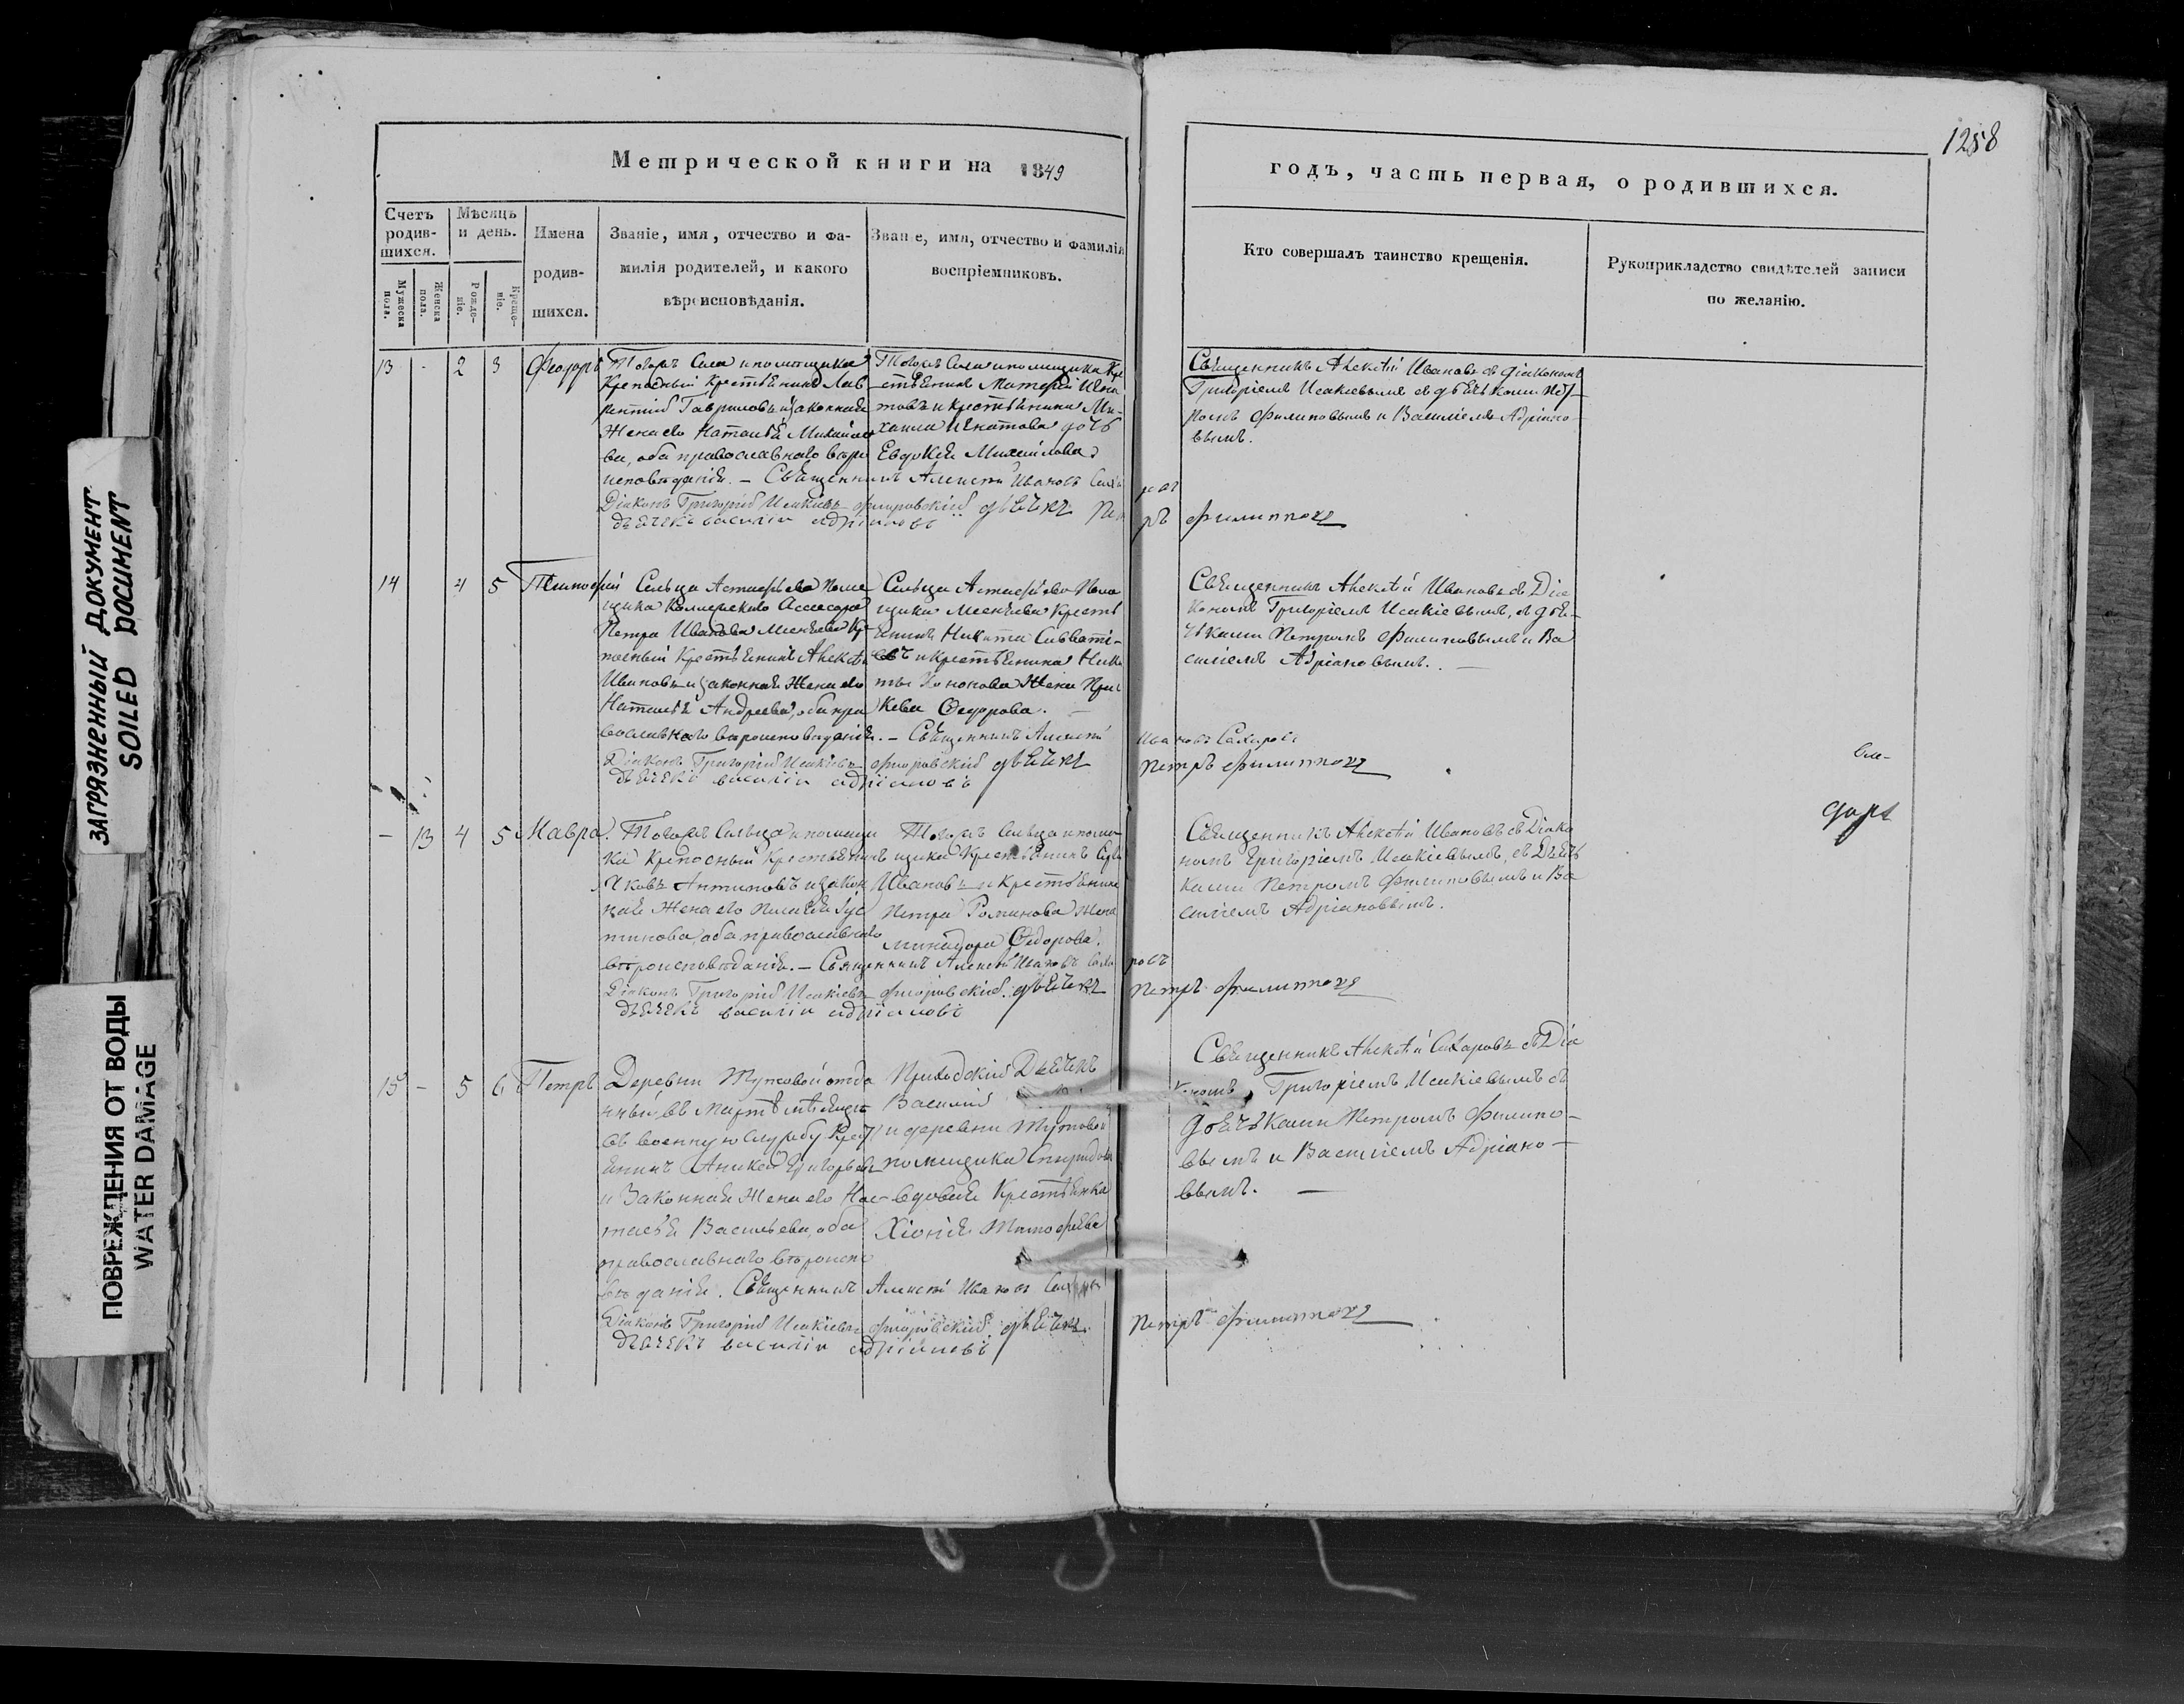 1258
Метрической книги на 1849
годъ, часть первая, о родившихся.
Счетъ родив-шихся.
Мужеска пола.
Женска пола.
Мѣсяцъ и день.
Рожде-ніе.
Креще-ніе.
Имена родив-шихся.
Званіе, имя, отчество и фа-
милія родителей, и какого
вѣроисповѣданія.
Званіе, имя, отчество и фамилія
воспріемниковъ.
Кто совершалъ таинство крещенія.
Рукоприкладство свидѣтелей записи
по желанію.
13 - 2 3 Феодоръ
Тогожъ Села и помѣщика
крепосный крестьянинъ Лав
рентій Гавриловъ и законная
Жена его Наталья Михайло
ва, оба православнаго вѣро
исповѣданія. – Священникъ Алексѣй Ивановъ Саха
ровъ
Діаконъ Григорій Исакіевъ дьячекъ Пет
ръ Филипповъ
дьячекъ василіи адріановъ
Тогожъ Села и помещика Кре
стьянинъ
и крестьянина Ми-
хаила Игнатова дочь
Евдокия Михайлова
Священникъ Алексѣй Ивановъ съ діакономъ
Григоріемъ Исакіевымъ съ дьячками Пет-
ромъ Филиповымъ и Василіемъ Адріано
вымъ.
14 4 5 Тимофей
Сельца Астафьева поме
щика Коллежскаго Ассесора
Петра Иванова Кре
посный Крестьянинъ Алексѣй
Ивановъ и законная Жена его
Наталья Андреева, оба пра
вославнаго вѣроисповѣданія. – Священникъ Алексѣй
Ивановъ Сахаровъ
Діаконъ Григорій Исакіевъ дьячекъ
Петръ Филипповъ
дьячекъ василіи адріановъ
Сельца Астафьева Поме
щика Кресть
янинъ Никита Савваті-
евъ и крестьянина Ники
ты Кононова Жена Прас
кева Федорова.
Священникъ Алексѣй Ивановъ съ Діа
кономъ Григоріемъ Исакіевымъ, съ дья-
чками Петромъ Филиповымъ и Ва
силіемъ Адріановымъ. –
– 13 4 5 Мавра.
Тогожъ Сельца и помещи
ка крепосный крестьянинъ
Яковъ Антиповъ и закон
ная Жена его Пелагея Аус
тинова, оба православнаго
вѣроисповѣданія. – Священникъ Алексѣй Ивановъ Саха
ровъ
Діаконъ Григорій Исакіевъ дьячекъ
Петръ Филипповъ
дьячекъ василіи адріановъ
Тогожъ Сельца и поме
щика Крестьянинъ
Ивановъ и крестьянина
Петра Романова Жена
Минадора Федорова.
Священникъ Алексѣй Ивановъ съ Діако
номъ Григоріемъ Исакіевымъ, съ Дьяч
ками Петромъ Филиповымъ и Ва
силіемъ Адріановымъ.
15 – 5 6 Петръ
Деревни отда
нный въ Мартѣ мѣсяцѣ
въ военную службу Крест
янинъ Григорьевъ
и Законная Жена его Нас-
тасья Васильева, оба
православнаго вѣроиспо
вѣданія. Священникъ Алексѣй Ивановъ Сахаровъ
Діаконъ Григорій Исакіевъ дьячекъ
Петръ Филипповъ
дьячекъ василіи адріановъ
Приходскій Дьячекъ
Василий
и деревни
помещика
вдовая Крестьянка
Хіонія Тимофеева
Священникъ Алексѣй Сахаровъ съ Діа
кономъ Григоріемъ Исакіевымъ съ
дьячками Петромъ Филипо-
вымъ и Василіемъ Адріано-
вымъ. –
ЗАГРЯЗНЕННЫЙ ДОКУМЕНТ
SOILED DOCUMENT
ПОВРЕЖДЕНИЯ ОТ ВОДЫ
WATER DAMAGE